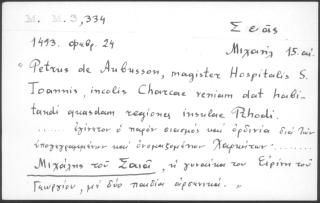 M. M. 3, 334
Σεᾶς
1493. Φεβρ. 24
Μιχαήλ 15 αἰ.
Petrus de Aubusson, magister Hospitalis S.
Ioannis, incolis Charcae veniam dat habi-
tandi quasdam regiones insulae Rhodi.
....... ἐγίνετον ὁ παρὸν σιασμὸς καὶ ὀρδινία διὰ τῶν
ὑπογεγραμμένων καὶ ὀνομαζομένων Χαρκιτῶν. .......
Μιχάλης τοῦ Σεᾶ, ἡ γυναῖκα του Εἰρήνη τοῦ
Γεωργίου, μὲ δύο παιδία ἀρσενικά. »